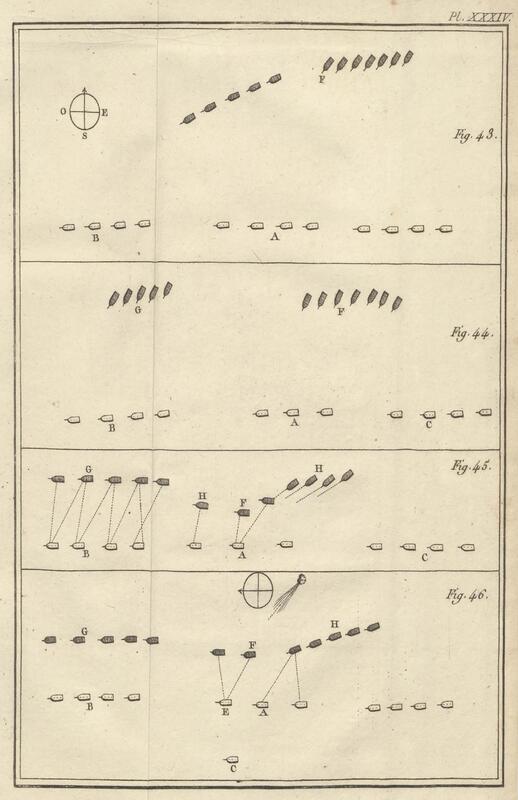 Pl. XXXIV.
F
O E
S
Fig. 43.
B A
G F
Fig. 44.
B A C
G H
Fig. 45.
H F
B A C
Fig. 46.
H
G F
B E A
C